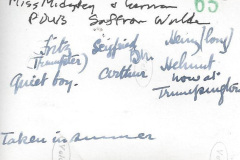 Miss Midgley & German
POWs Saffron Walden
65
Fritz Seigfried Heinz (Long)
(Trumpeter) Helmut
Quiet boy. Arthur now at
Trumpington
Taken in summer